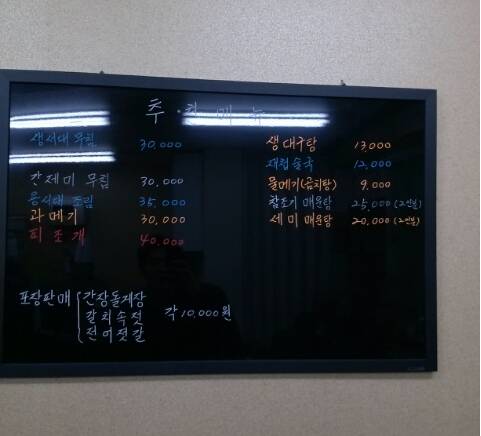 추·천 메뉴
생서대 무침 30,000
간제미 무침 30,000
응서대 조림 35,000
과메기 30,000
피조개 40,000
생대구탕 13000
재첩술국 12,000
물메기(곰치탕) 9,000
참조기 매운탕 25,000 (2인분)
세미 매운탕 20,000 (2인분)
포장판매 간장돌게장
갈치속젓
전어젓갈
각 10,000원